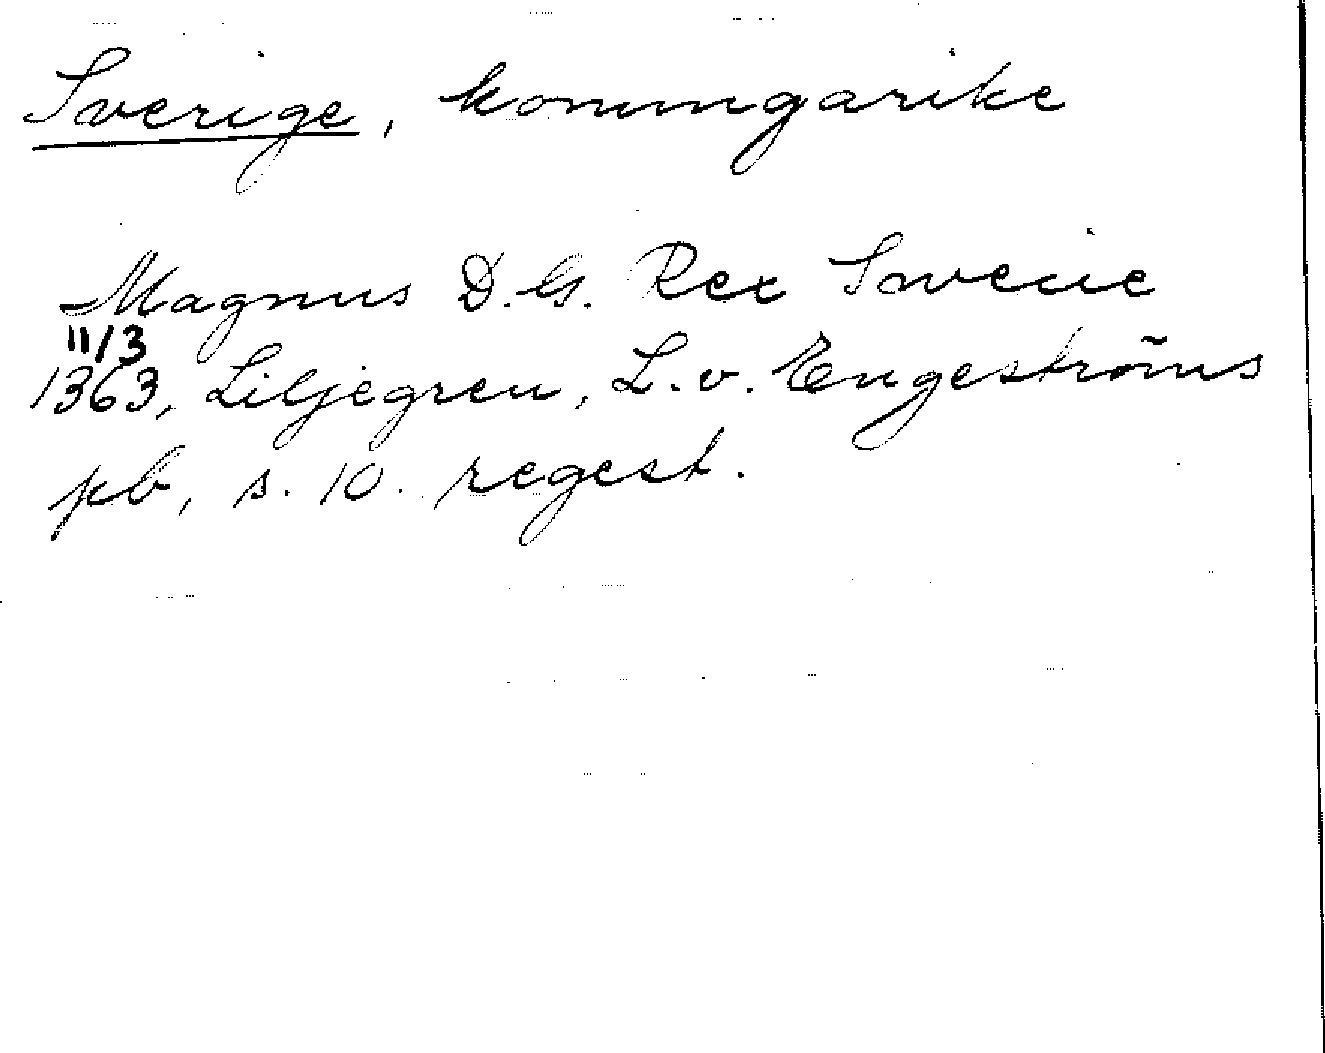 Sverige, konungarike
Magnus D. G. Rex Swecie
11/3
1363, Liljegren, L. v. Engeströms
pb, s. 10. regest.